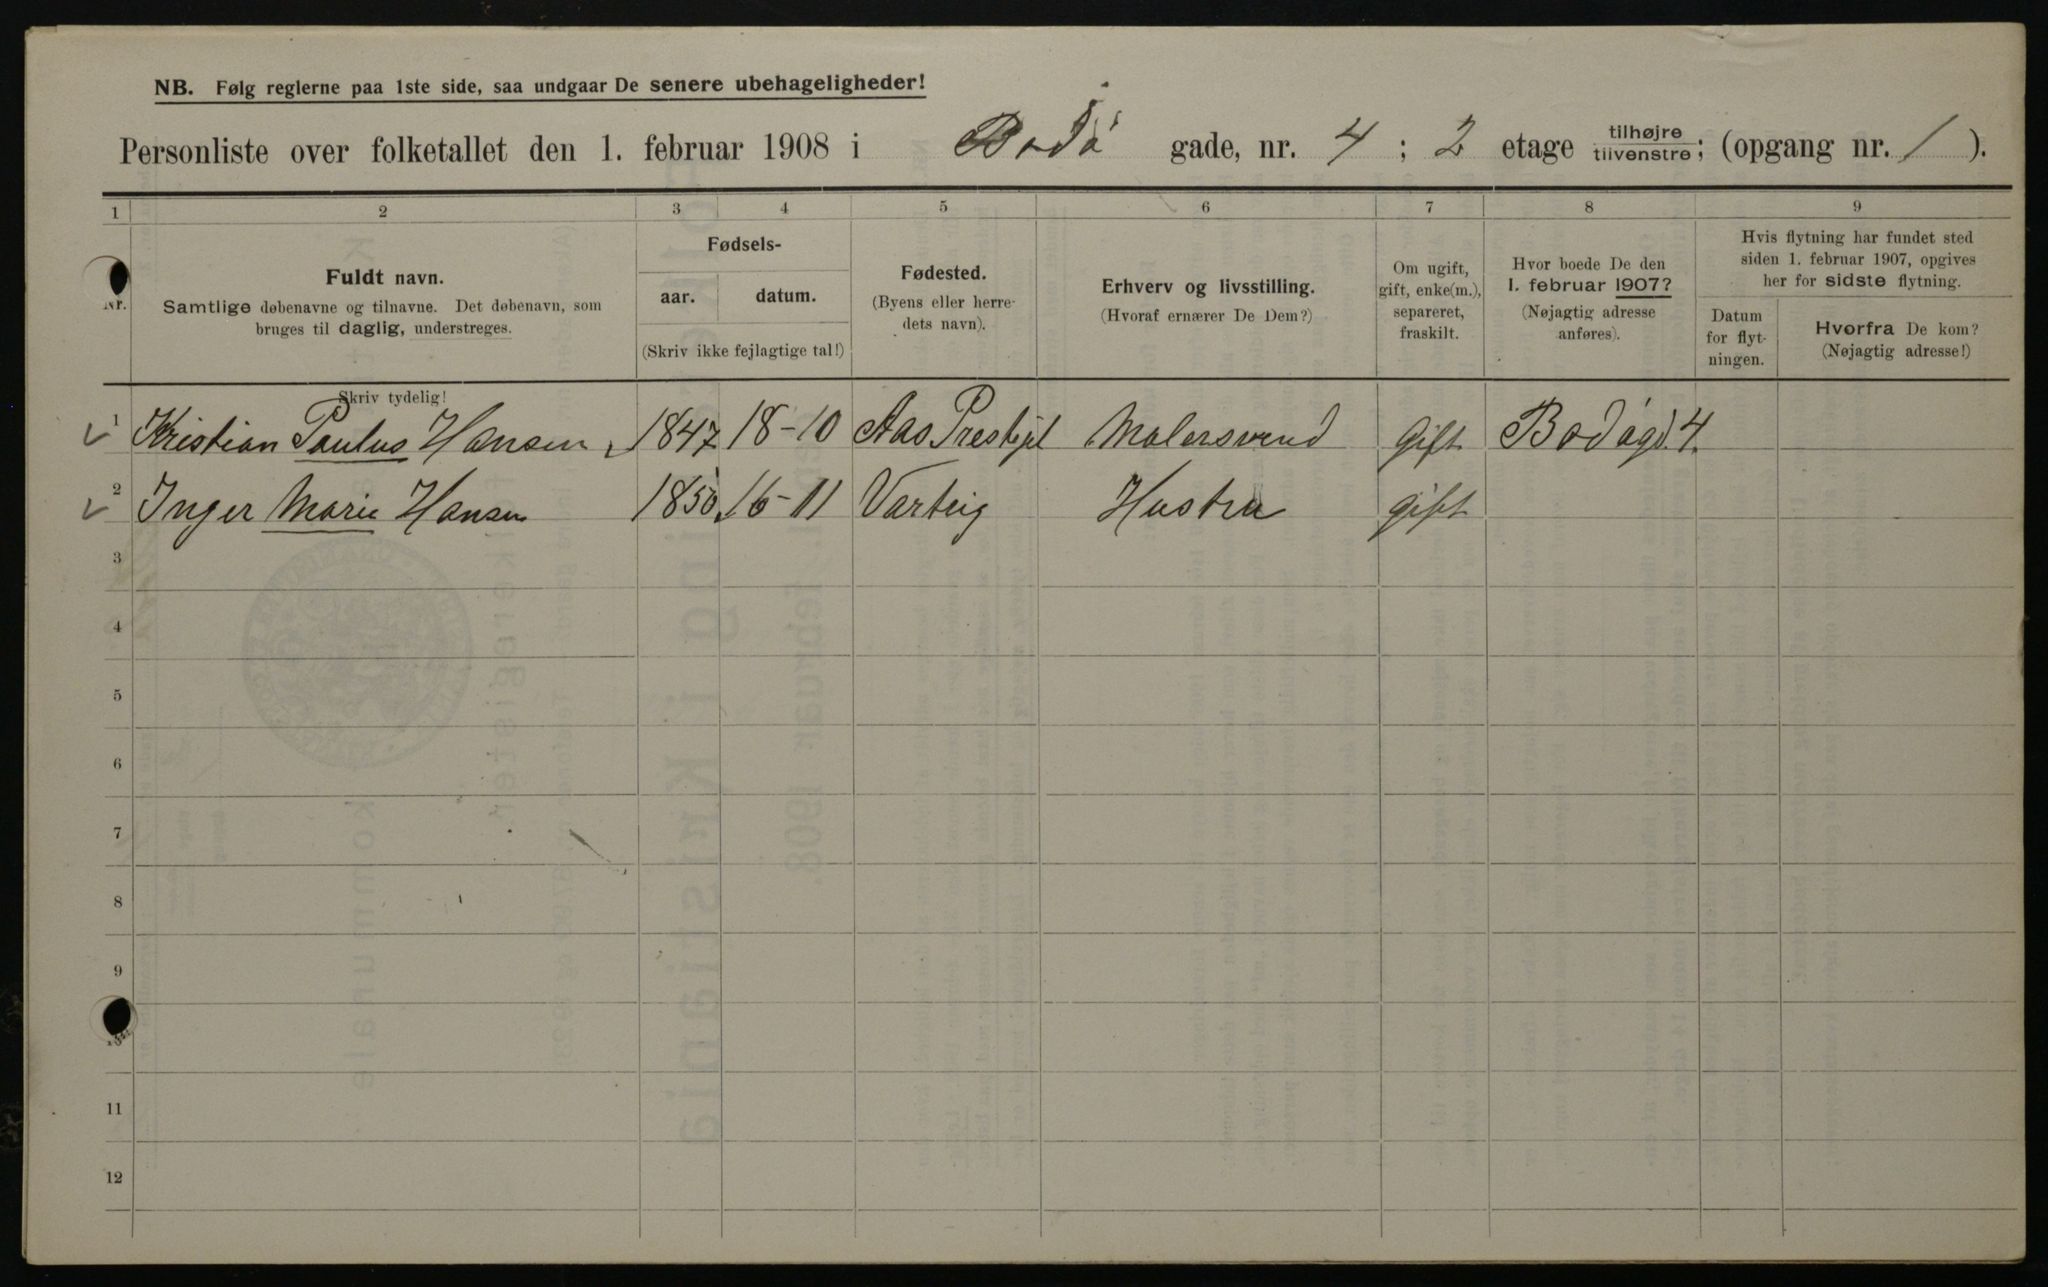 NB. Følg reglerne paa 1ste side, saa undgaar De senere ubehageligheder!
Personliste over folketallet den 1. februar 1908 i Bodø gade, nr. 4 ; 2 etage tilhøjre / tilvenstre; (opgang nr. 1 ).
1 2 3 4 5 6 7 8 9
Nr.
Fuldt navn.
Samtlige døbenavne og tilnavne. Det døbenavn, som
bruges til daglig, understreges.
Fødsels-
aar. datum.
(Skriv ikke fejlagtige tal!)
Fødested.
(Byens eller herre-
dets navn).
Erhverv og livsstilling.
(Hvoraf ernærer De Dem?)
Om ugift,
gift, enke(m.),
separeret,
fraskilt.
Hvor boede De den
1. februar 1907?
(Nøjagtig adresse
anføres).
Hvis flytning har fundet sted
siden 1. februar 1907, opgives
her for sidste flytning.
Datum
for flyt-
ningen.
Hvorfra De kom?
(Nøjagtig adresse!)
Skriv tydelig!
1 Kristian Paulus Hansen 1847 18-10 Aas Prestgjel Malersvend gift Bodøgd. 4.
2 Inger Marie Hansen 1850 16-11 Varteig Hustru gift
3
4
5
6
7
8
9
10
11
12